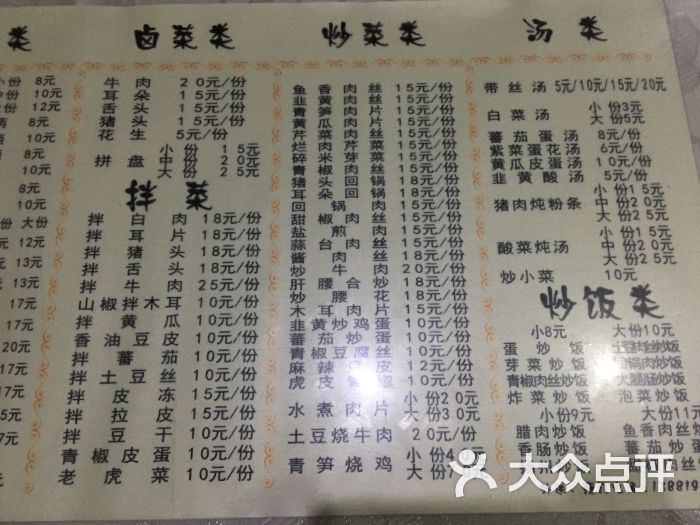 类
小份 8元
中份 10元
大份 12元
8元
10元
8元
10元
8元
份 大份
元 13元
元 13元
元 13元
17元
17元
20元
17元
15元
17元
17元
卤菜类
牛肉 20元/份
耳朵 15元/份
舌头 15元/份
猪头 15元/份
花生 5元/份
小份 15元
拼盘 中份 20元
大份 25元
拌菜
拌白肉 18元/份
拌耳片 18元/份
拌猪头 18元/份
拌舌头 18元/份
拌牛肉 25元/份
山椒拌木耳 10元/份
拌黄瓜 10元/份
香油豆皮 10元/份
拌蕃茄 10元/份
拌土豆丝 10元/份
拌皮冻 15元/份
拌拉皮 15元/份
拌豆干 10元/份
青椒皮蛋 10元/份
老虎菜 10元/份
炒菜类
鱼香肉丝 15元/份
韭黄肉丝 15元/份
青笋肉片 15元/份
黄瓜肉片 15元/份
芹菜肉丝 15元/份
烂肉芹菜 15元/份
碎米芽菜 15元/份
青椒肉丝 15元/份
猪头回锅 18元/份
耳朵回锅 18元/份
回锅肉 18元/份
甜椒肉丝 15元/份
盐煎肉 18元/份
蒜台肉丝 18元/份
酱肉丝 18元/份
炒牛肉 20元/份
肝腰合炒 18元/份
炒腰花 18元/份
木耳肉片 15元/份
韭黄炒鸡蛋 10元/份
蕃茄炒蛋 10元/份
青椒豆腐丝 10元/份
麻辣豆皮 12元/份
虎皮青椒 10元/份
水煮肉片 小份20元
大份30元
土豆烧牛肉 20元/份
青笋烧鸡 小份4
大份7
汤类
带丝汤 5元/10元/15元/20元
白菜汤 小份3元
大份5元
蕃茄蛋汤 8元/份
紫菜蛋花汤 6元/份
黄瓜皮蛋汤 10元/份
韭黄酸汤 5元/份
小份15元
猪肉炖粉条 中份20元
大份25元
小份15元
酸菜炖汤 中份20元
大份25元
炒小菜 10元
炒饭类
小8元 大份10元
蛋炒饭 土豆肉丝炒饭
芽菜炒饭 回锅肉炒饭
青椒肉丝炒饭 火腿肠炒饭
炸菜炒饭 泡菜炒饭
小份9元 大份11元
腊肉炒饭 鱼香肉丝炒
香肠炒饭 蕃茄炒蛋
大众点评